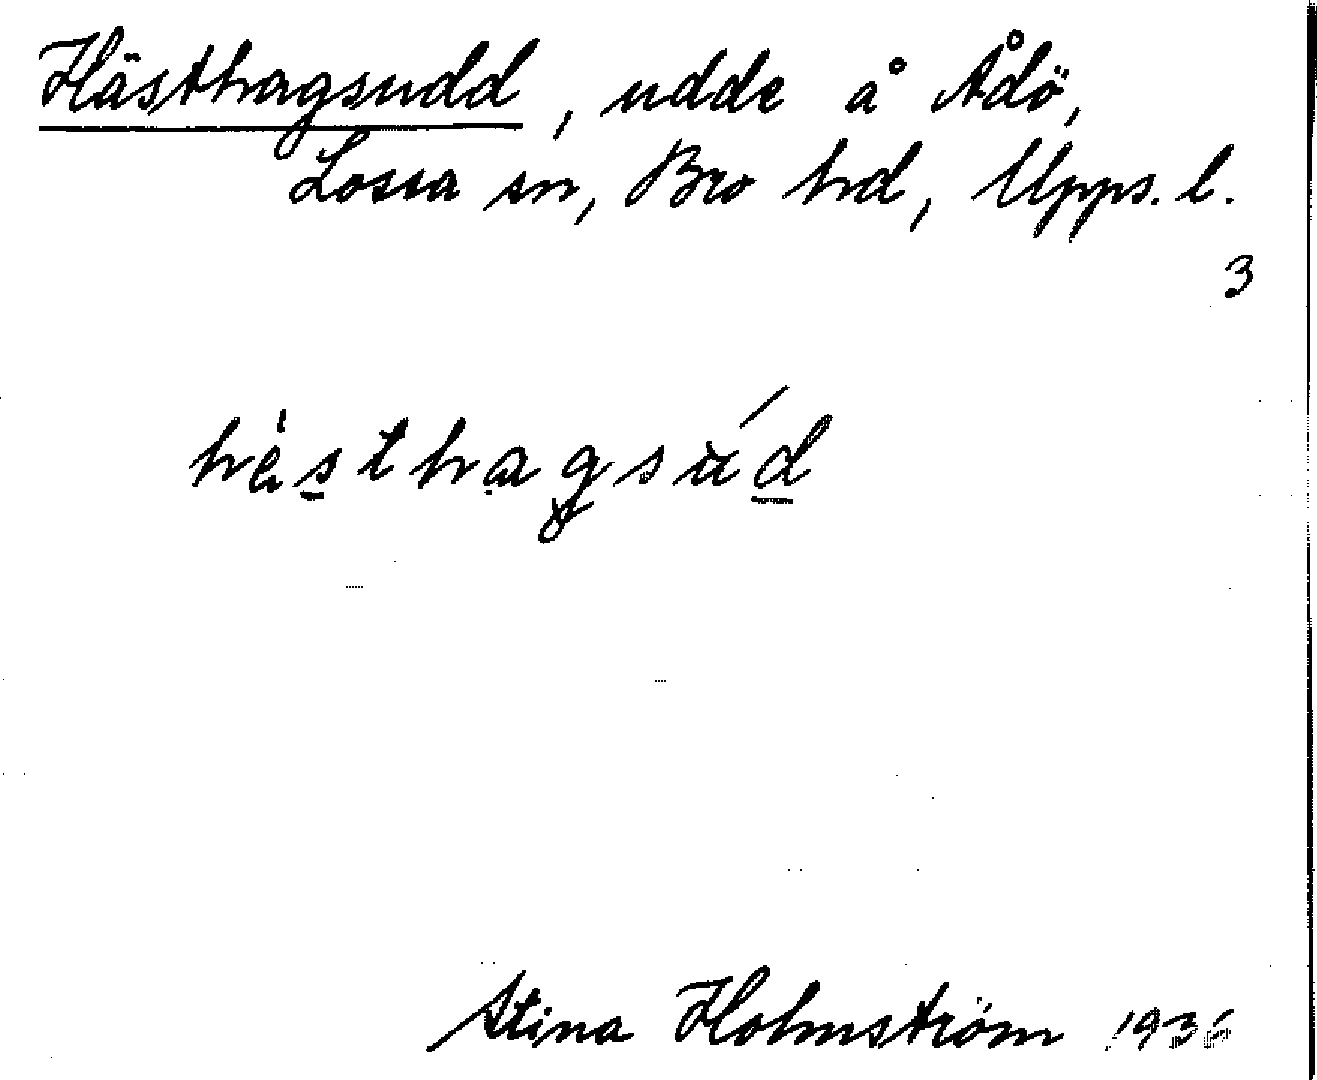 Hästhagsudd, udde å Ådö,
Lossa sn, Bro hd, Upps. l.
3
hästhagsud
Stina Holmström 1936